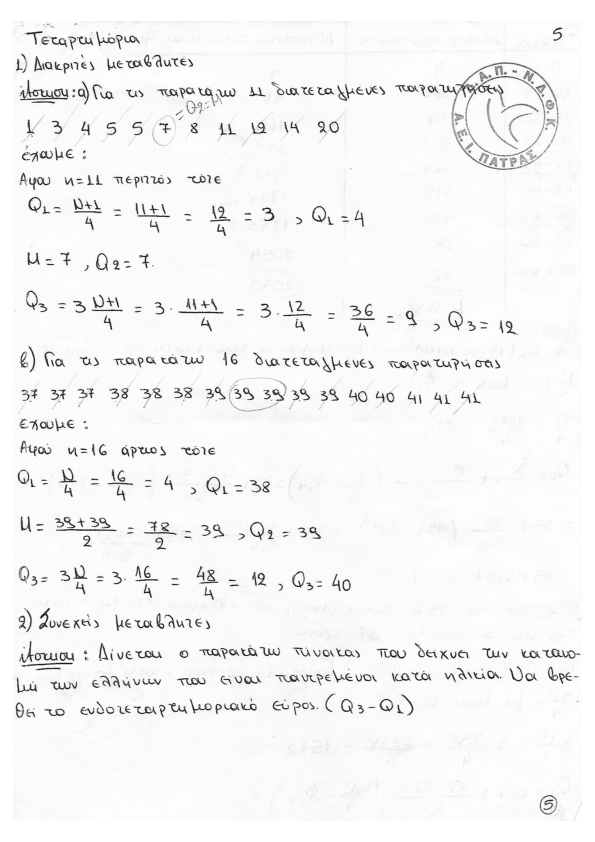 5
Τεταρτημόρια
1) Διακριτές μεταβλητες
άσκηση: α) Για τις παρακατω 11 διατεταγμενες παρατηρησεις
Α.Π. - Ν.Δ.Φ.Κ.
Α.Ε.Ι. ΠΑΤΡΑΣ
= Q2=M
1 3 4 5 5 7 8 11 12 14 20
έχουμε :
Αφου n=11 περιττός τότε
Q1 = N+1/4 = 11+1/4 = 12/4 = 3 , Q1=4
M=7 , Q2=7.
Q3 = 3 N+1/4 = 3 · 11+1/4 = 3 · 12/4 = 36/4 = 9 , Q3=12
β) Για τις παρακάτω 16 διατεταγμενες παρατηρήσεις
37 37 37 38 38 38 39 39 39 39 39 40 40 41 41 41
έχουμε :
Αφού n=16 άρτιος τότε
Q1= N/4 = 16/4 = 4 , Q1=38
M = 39+39/2 = 78/2 = 39 , Q2 = 39
Q3= 3 N/4 = 3 · 16/4 = 48/4 = 12 , Q3=40
2) Συνεχείς μεταβλητες
άσκηση : Δίνεται ο παρακάτω πινακας που δειχνει την κατανο-
μή των ελλήνων που ειναι παντρεμένοι κατά ηλικία. Να βρε-
θεί το ενδοτεταρτημοριακό εύρος. (Q3-Q1)
5